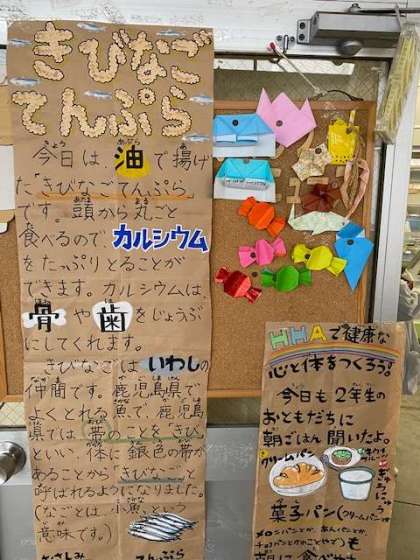 きびなご
てんぷら
今日は油で揚げ
た"きびなごてんぷら"
です。頭から丸ごと
食べるのでカルシウム
をたっぷりとることが
できます。カルシウムは、
骨や歯をじょうぶ
にしてくれます。
きびなごはいわしの
仲間です。鹿児島県で
よくとれる魚で、鹿児島
県では帯のことを"きび"
といい、体に銀色の帯が
あることから"きびなご"と
呼ばれるようになりました。
(なごとは、小魚という
意味です。)
おさしみ
てんぷら
HHAで健康な
心と体をつくろう!
今日も2年生の
おともだちに
朝ごはん聞いたよ。
クリームパン
ぎゅうにゅう
菓子パン(クリームパンや
メロンパンとか、あんパンとか、
チョコパンとかのことやで)も